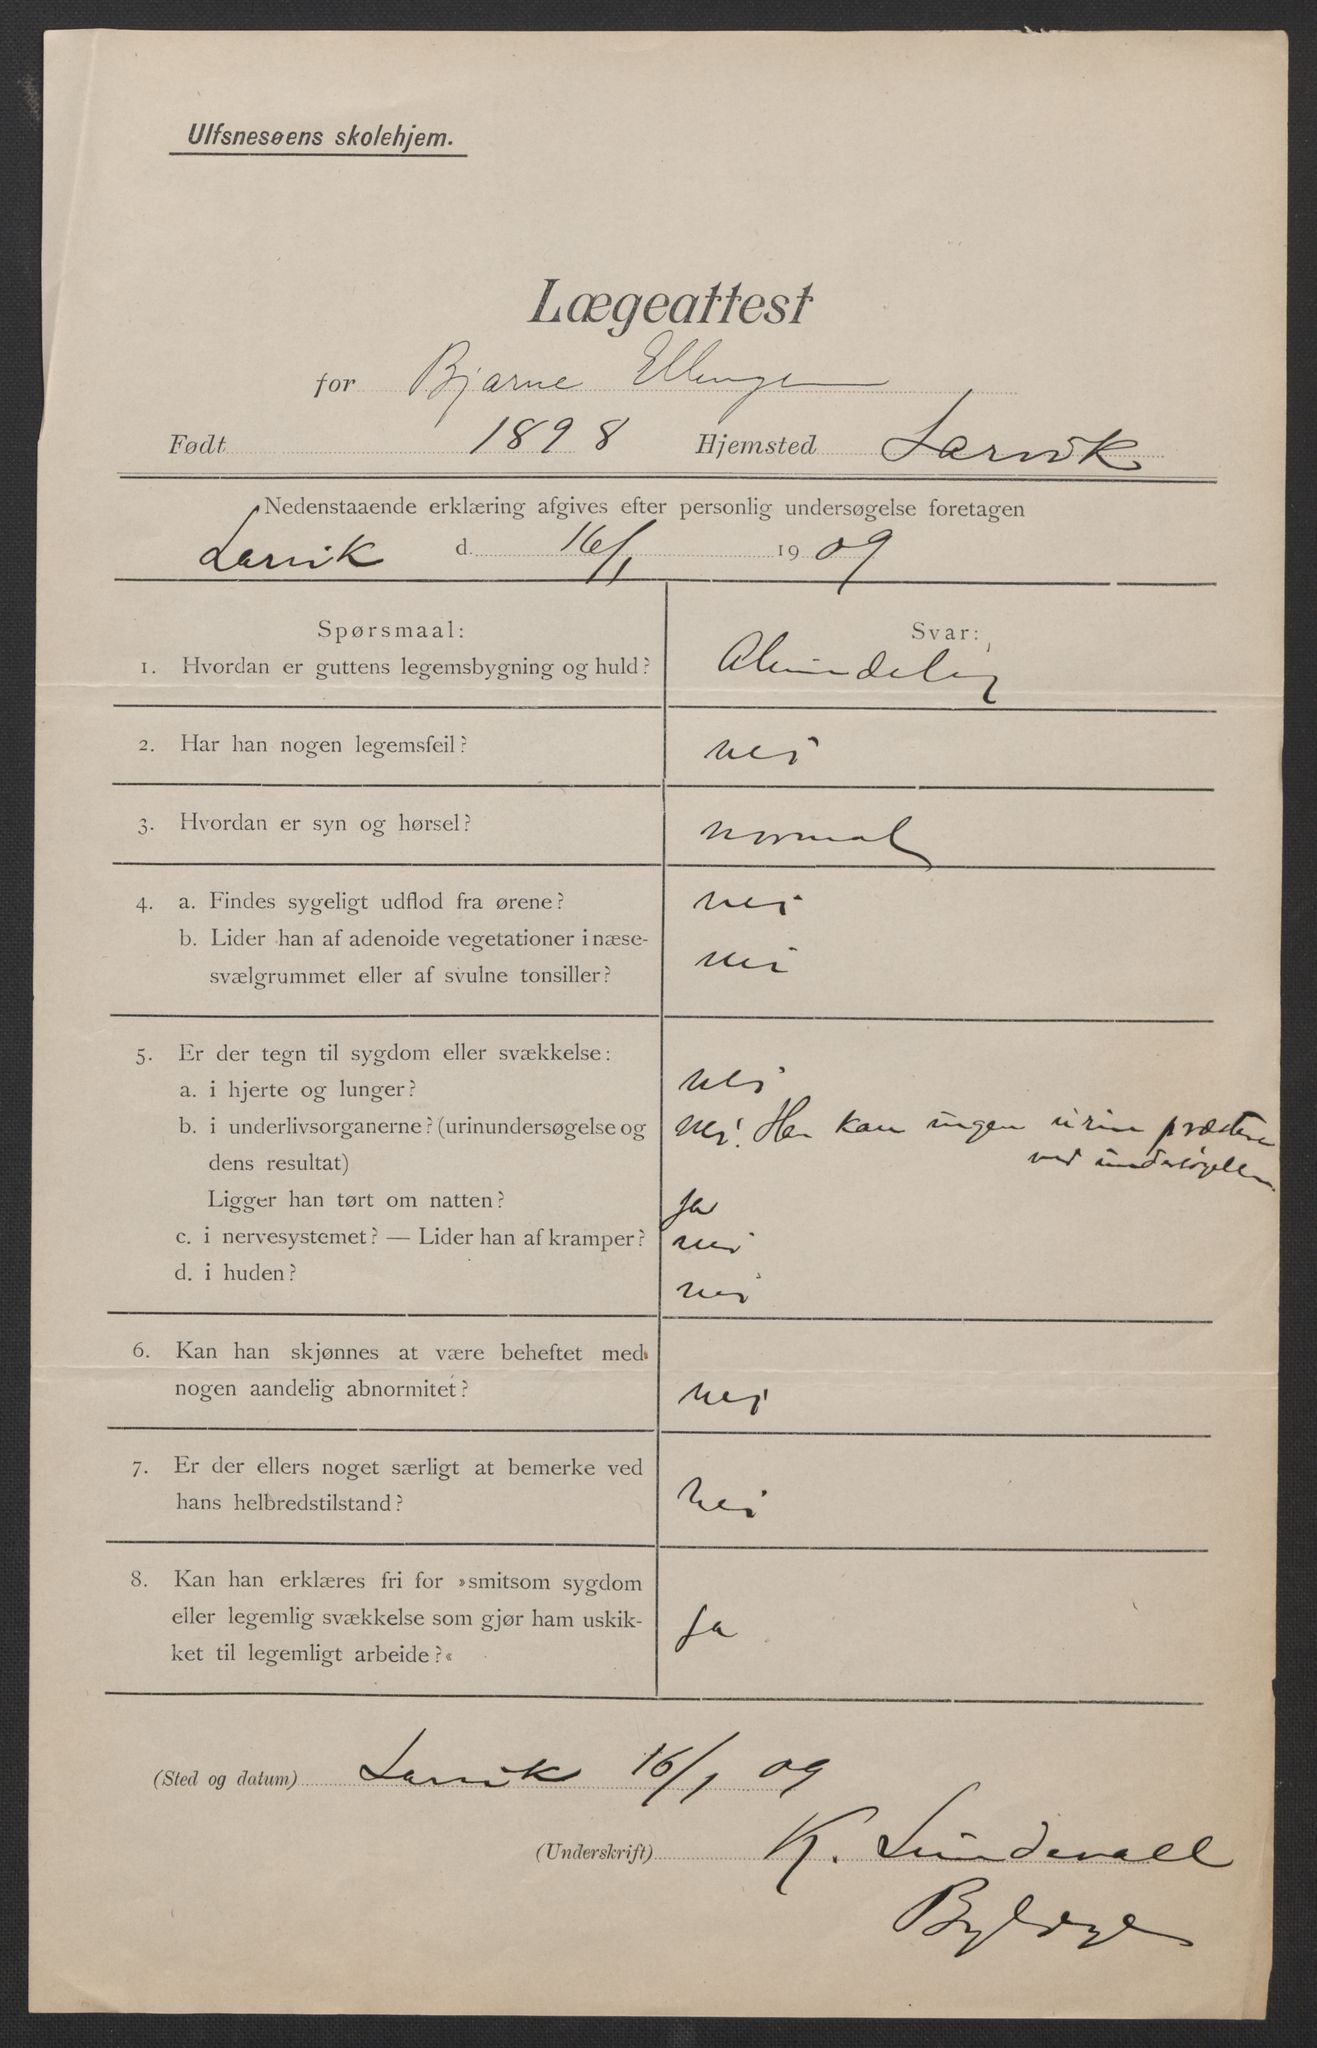 Ulfsnesøens skolehjem.
Lægeattest
for Bjarne Ellingsen
Født 1898 Hjemsted Larvik
Nedenstaaende erklæring afgives efter personlig undersøgelse foretagen
Larvik d. 16/1 1909
Spørsmaal: Svar:
1. Hvordan er guttens legemsbygning og huld? Almindelig
2. Har han nogen legemsfeil? nei
3. Hvordan er syn og hørsel? normal
4. a. Findes sygeligt udflod fra ørene? nei
b. Lider han af adenoide vegetationer i næse-
svælgrummet eller af svulne tonsiller? nei
5. Er der tegn til sygdom eller svækkelse:
a. i hjerte og lunger? nei
b. i underlivsorganerne? (urinundersøgelse og nei. Han kan ingen urin præstere
dens resultat) ved undersøgelsen.
Ligger han tørt om natten? ja
c. i nervesystemet? — Lider han af kramper? nei
d. i huden? nei
6. Kan han skjønnes at være beheftet med
nogen aandelig abnormitet? nei
7. Er der ellers noget særligt at bemerke ved
hans helbredstilstand? nei
8. Kan han erklæres fri for »smitsom sygdom
eller legemlig svækkelse som gjør ham uskik-
ket til legemligt arbeide?« ja
(Sted og datum) Larvik 16/1 09
(Underskrift) K. Lundevall
Bylæge